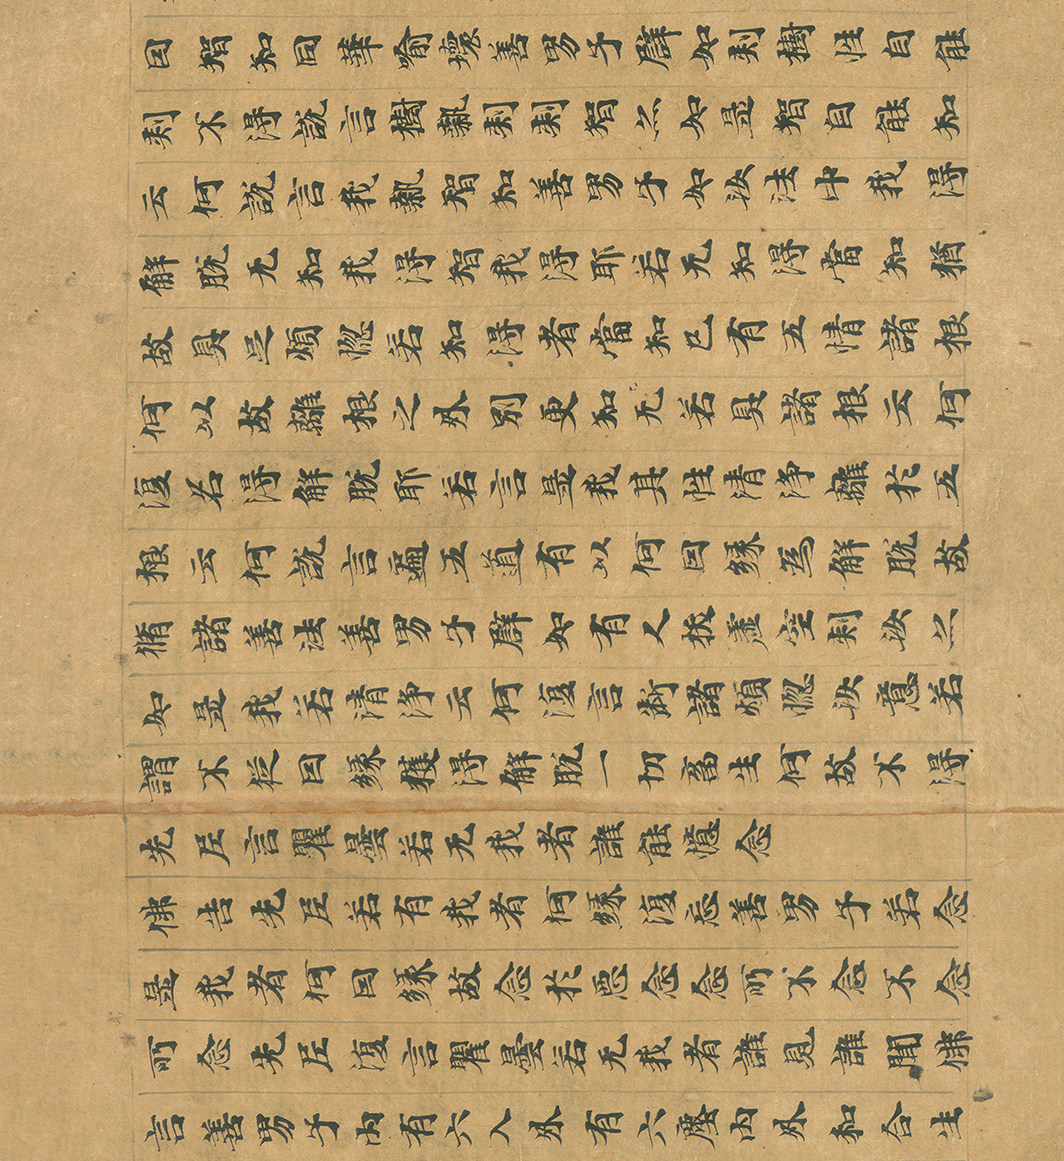 因智知同華喻壞善男子譬如刺樹性自能
刺不得說言樹執刺刺智亦如是智自能知
云何說言我執智知善男子如汝法中我得
解脫无知我得智我得耶若无知得當知猶
故具足煩惱若知得者當知已有五情諸根
何以故離根之外別更知无若具諸根云何
復名得解脫耶若言是我其性清淨離於五
根云何說言遍五道有以何因緣為解脫故
脩諸善法善男子譬如有人拔虛空刺汝亦
如是我若清淨云何復言斷諸煩惱汝意若
謂不從因緣獲得解脫一切畜生何故不得
先尼言瞿曇若无我者誰能憶念
佛告先尼若有我者何緣復忘善男子若念
是我者何因緣故念於惡念念所不念不念
所念先尼復言瞿曇若无我者誰見誰聞佛
言善男子內有六入外有六塵內外和合生